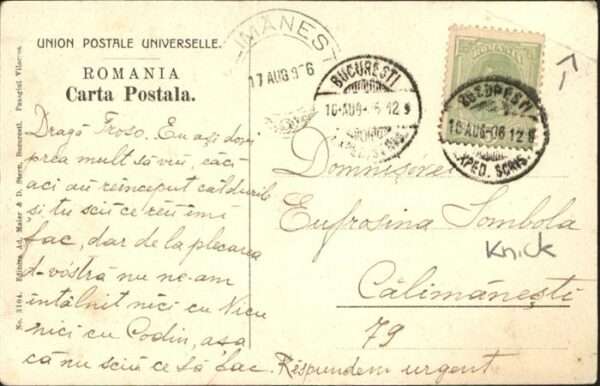 UNION POSTALE UNIVERSELLE.
ROMANIA
Carta Postala.
No. 3104. Editura Ad. Maier & D. Stern, Bucuresti. Pasagiul Vilacros.
Dragă Froso. Eu aşi dori
prea mult să viu, căci
aci au reînceput căldurile
şi tu scii ce rĕu îmi
fac, dar de la plecarea
d-vóstră nu ne-am
întâlnit nici cu Nicu
nici cu Codin, aşa
că nu sciu ce să fac. Respundem urgent
17 AUG 906
BUCURESTI
16-AUG-06 12
BUCURESTI
16 AUG-06 12
EXPED. SCRIS.
Domnişorei
Eufrosina Sombola
Knick
Călimăneşti
79